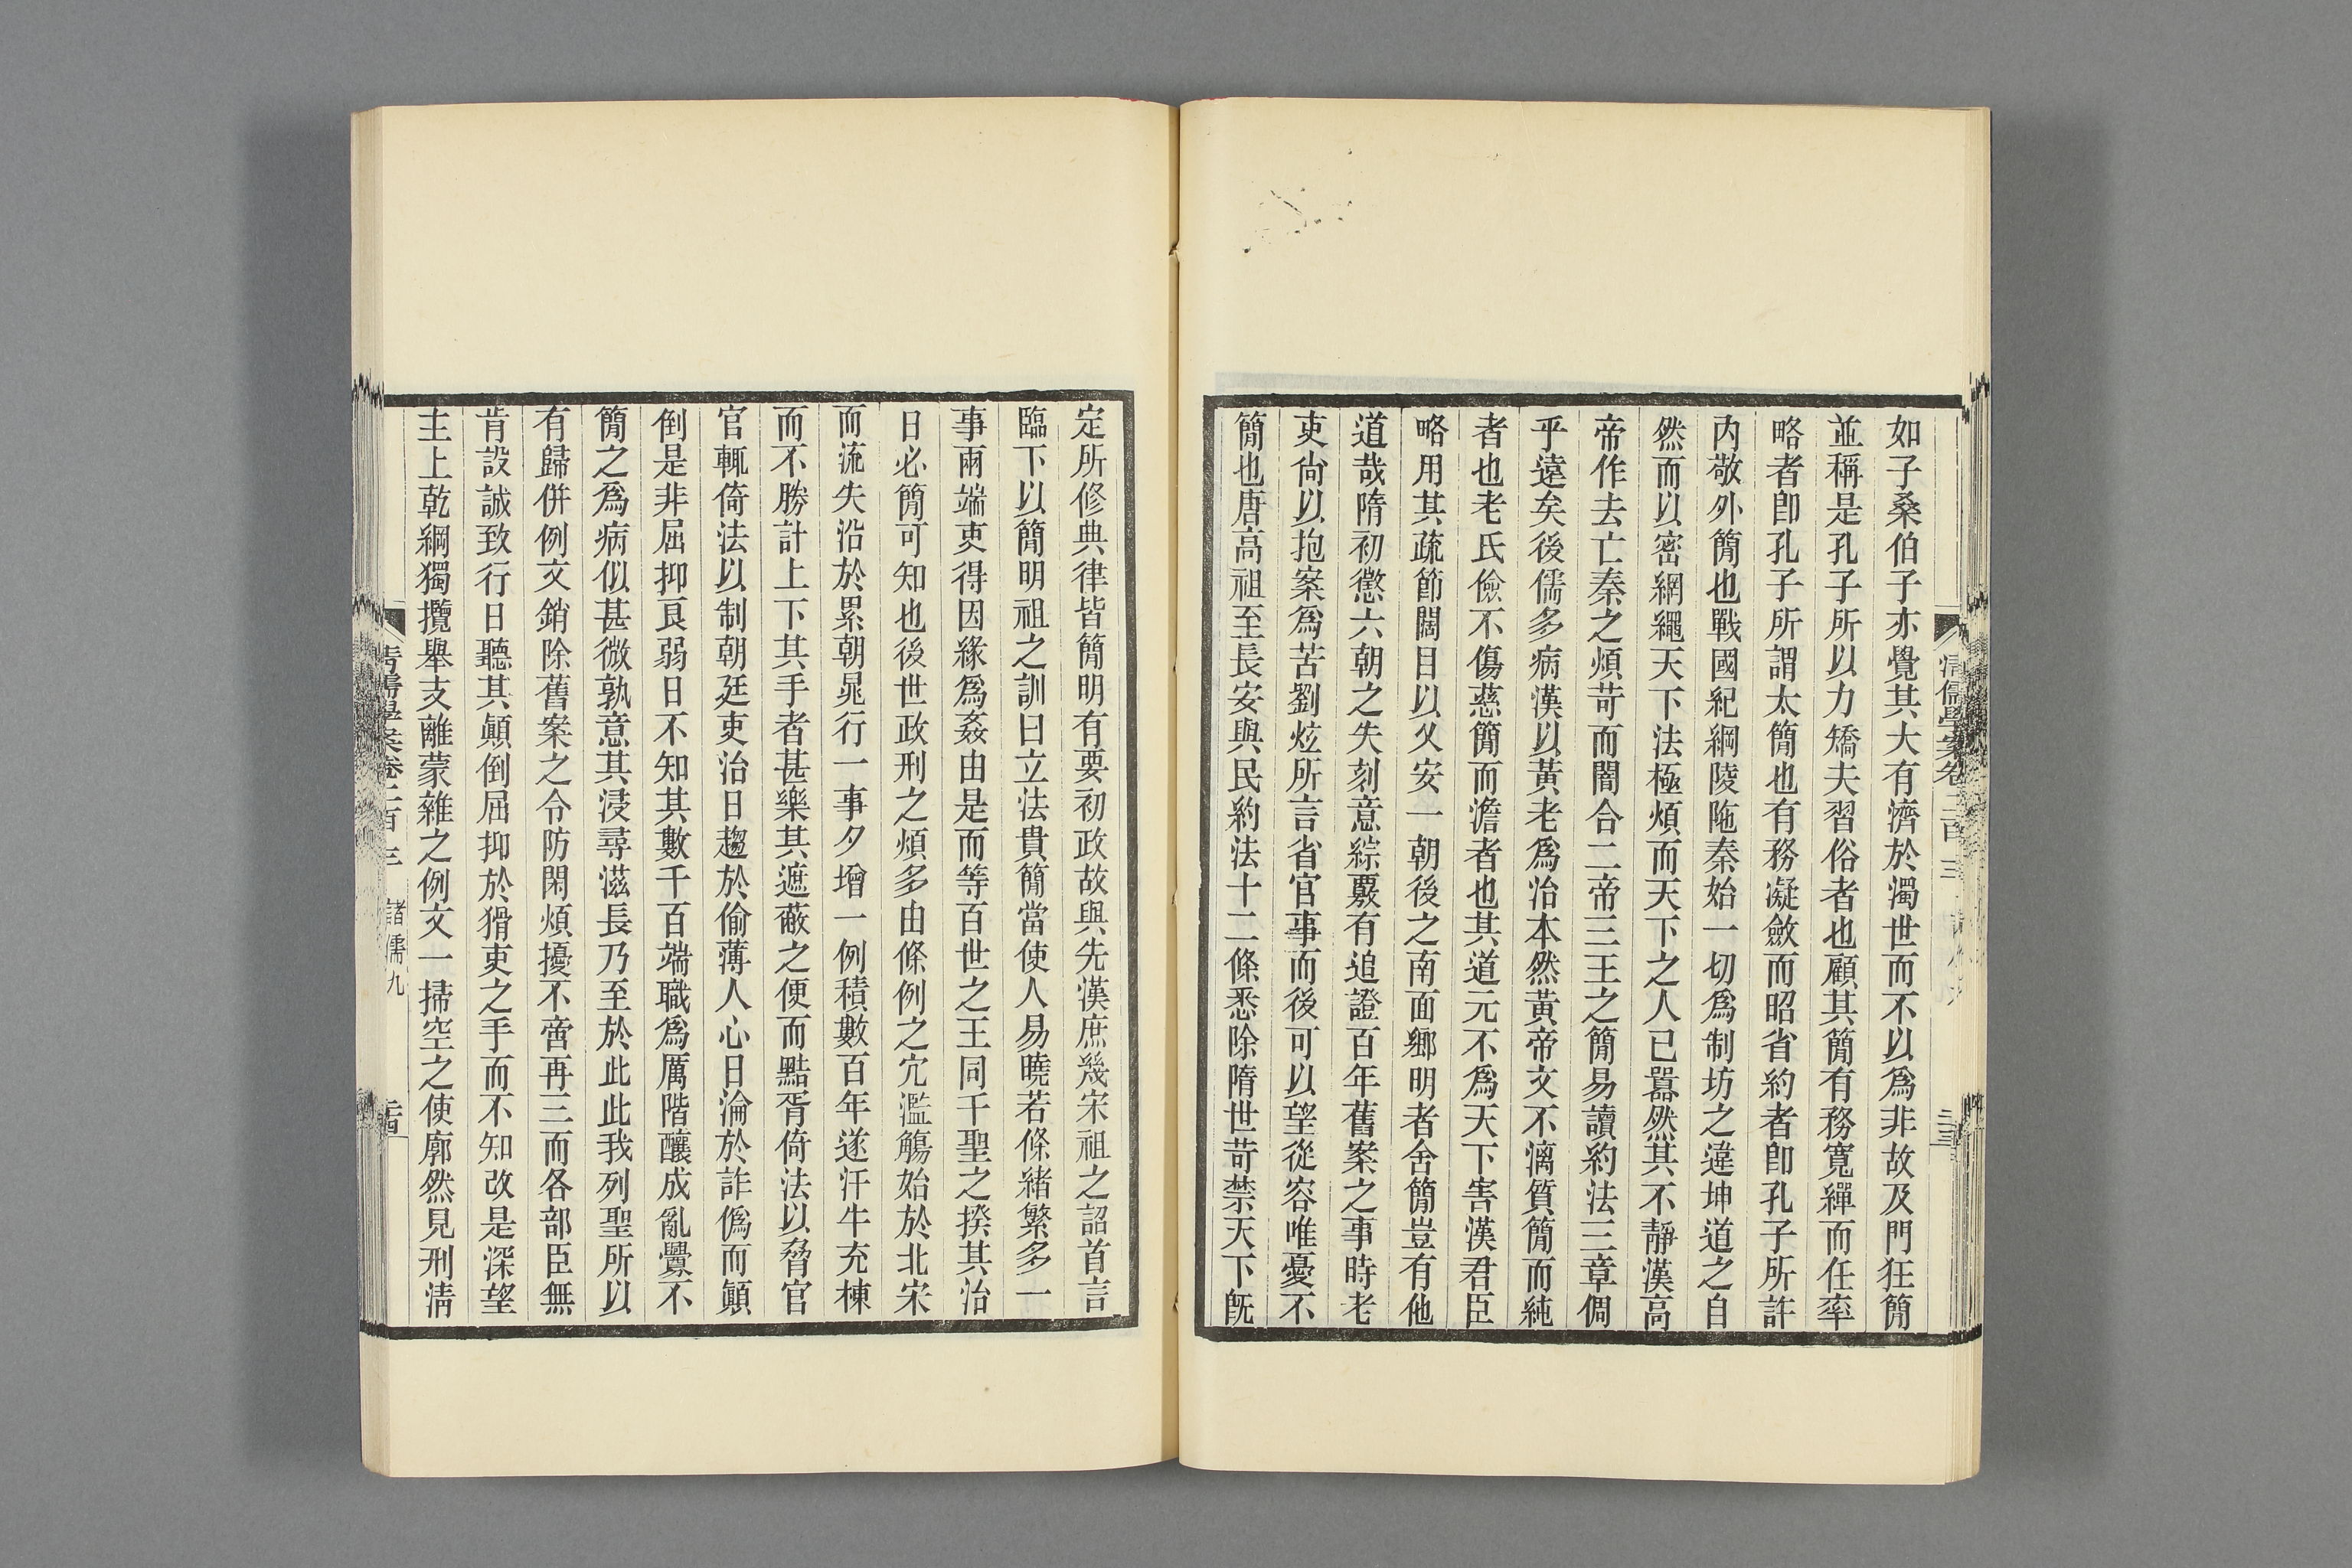 如子桑伯子亦覺其大有濟於濁世而不以爲非故及門狂簡
並稱是孔子所以力矯夫習俗者也顧其簡有務寬繟而任率
略者卽孔子所謂太簡也有務凝斂而昭省約者卽孔子所許
內敬外簡也戰國紀綱陵阤秦始一切爲制坊之違坤道之自
然而以密網繩天下法極煩而天下之人已囂然其不靜漢高
帝作去亡秦之煩苛而闇合二帝三王之簡易讀約法三章倜
乎遠矣後儒多病漢以黃老爲治本然黃帝文不漓質簡而純
者也老氏儉不傷慈簡而澹者也其道元不爲天下害漢君臣
略用其疏節闊目以乂安一朝後之南面鄉明者舍簡豈有他
道哉隋初懲六朝之失刻意綜覈有追證百年舊案之事時老
吏尙以抱案爲苦劉炫所言省官事而後可以望從容唯憂不
簡也唐高祖至長安與民約法十二條悉除隋世苛禁天下旣
清儒學案卷二百三
二十三
定所修典律皆簡明有要初政故與先漢庶幾宋祖之詔首言
臨下以簡明祖之訓曰立法貴簡當使人易曉若條緒繁多一
事兩端吏得因緣爲姦由是而等百世之王同千聖之揆其治
日必簡可知也後世政刑之煩多由條例之宂濫觴始於北宋
而流失沿於累朝晁行一事夕增一例積數百年遂汗牛充棟
而不勝計上下其手者甚樂其遮蔽之便而黠胥倚法以脅官
官輒倚法以制朝廷吏治日趨於偷薄人心日淪於詐僞而顚
倒是非屈抑良弱日不知其數千百端職爲厲階釀成亂釁不
簡之爲病似甚微孰意其浸尋滋長乃至於此此我列聖所以
有歸併例文銷除舊案之令防閑煩擾不啻再三而各部臣無
肯設誠致行日聽其顚倒屈抑於猾吏之手而不知改是深望
主上乾綱獨攬舉支離蒙雜之例文一掃空之使廓然見刑淸
清儒學案卷二百三 諸儒九
二十四